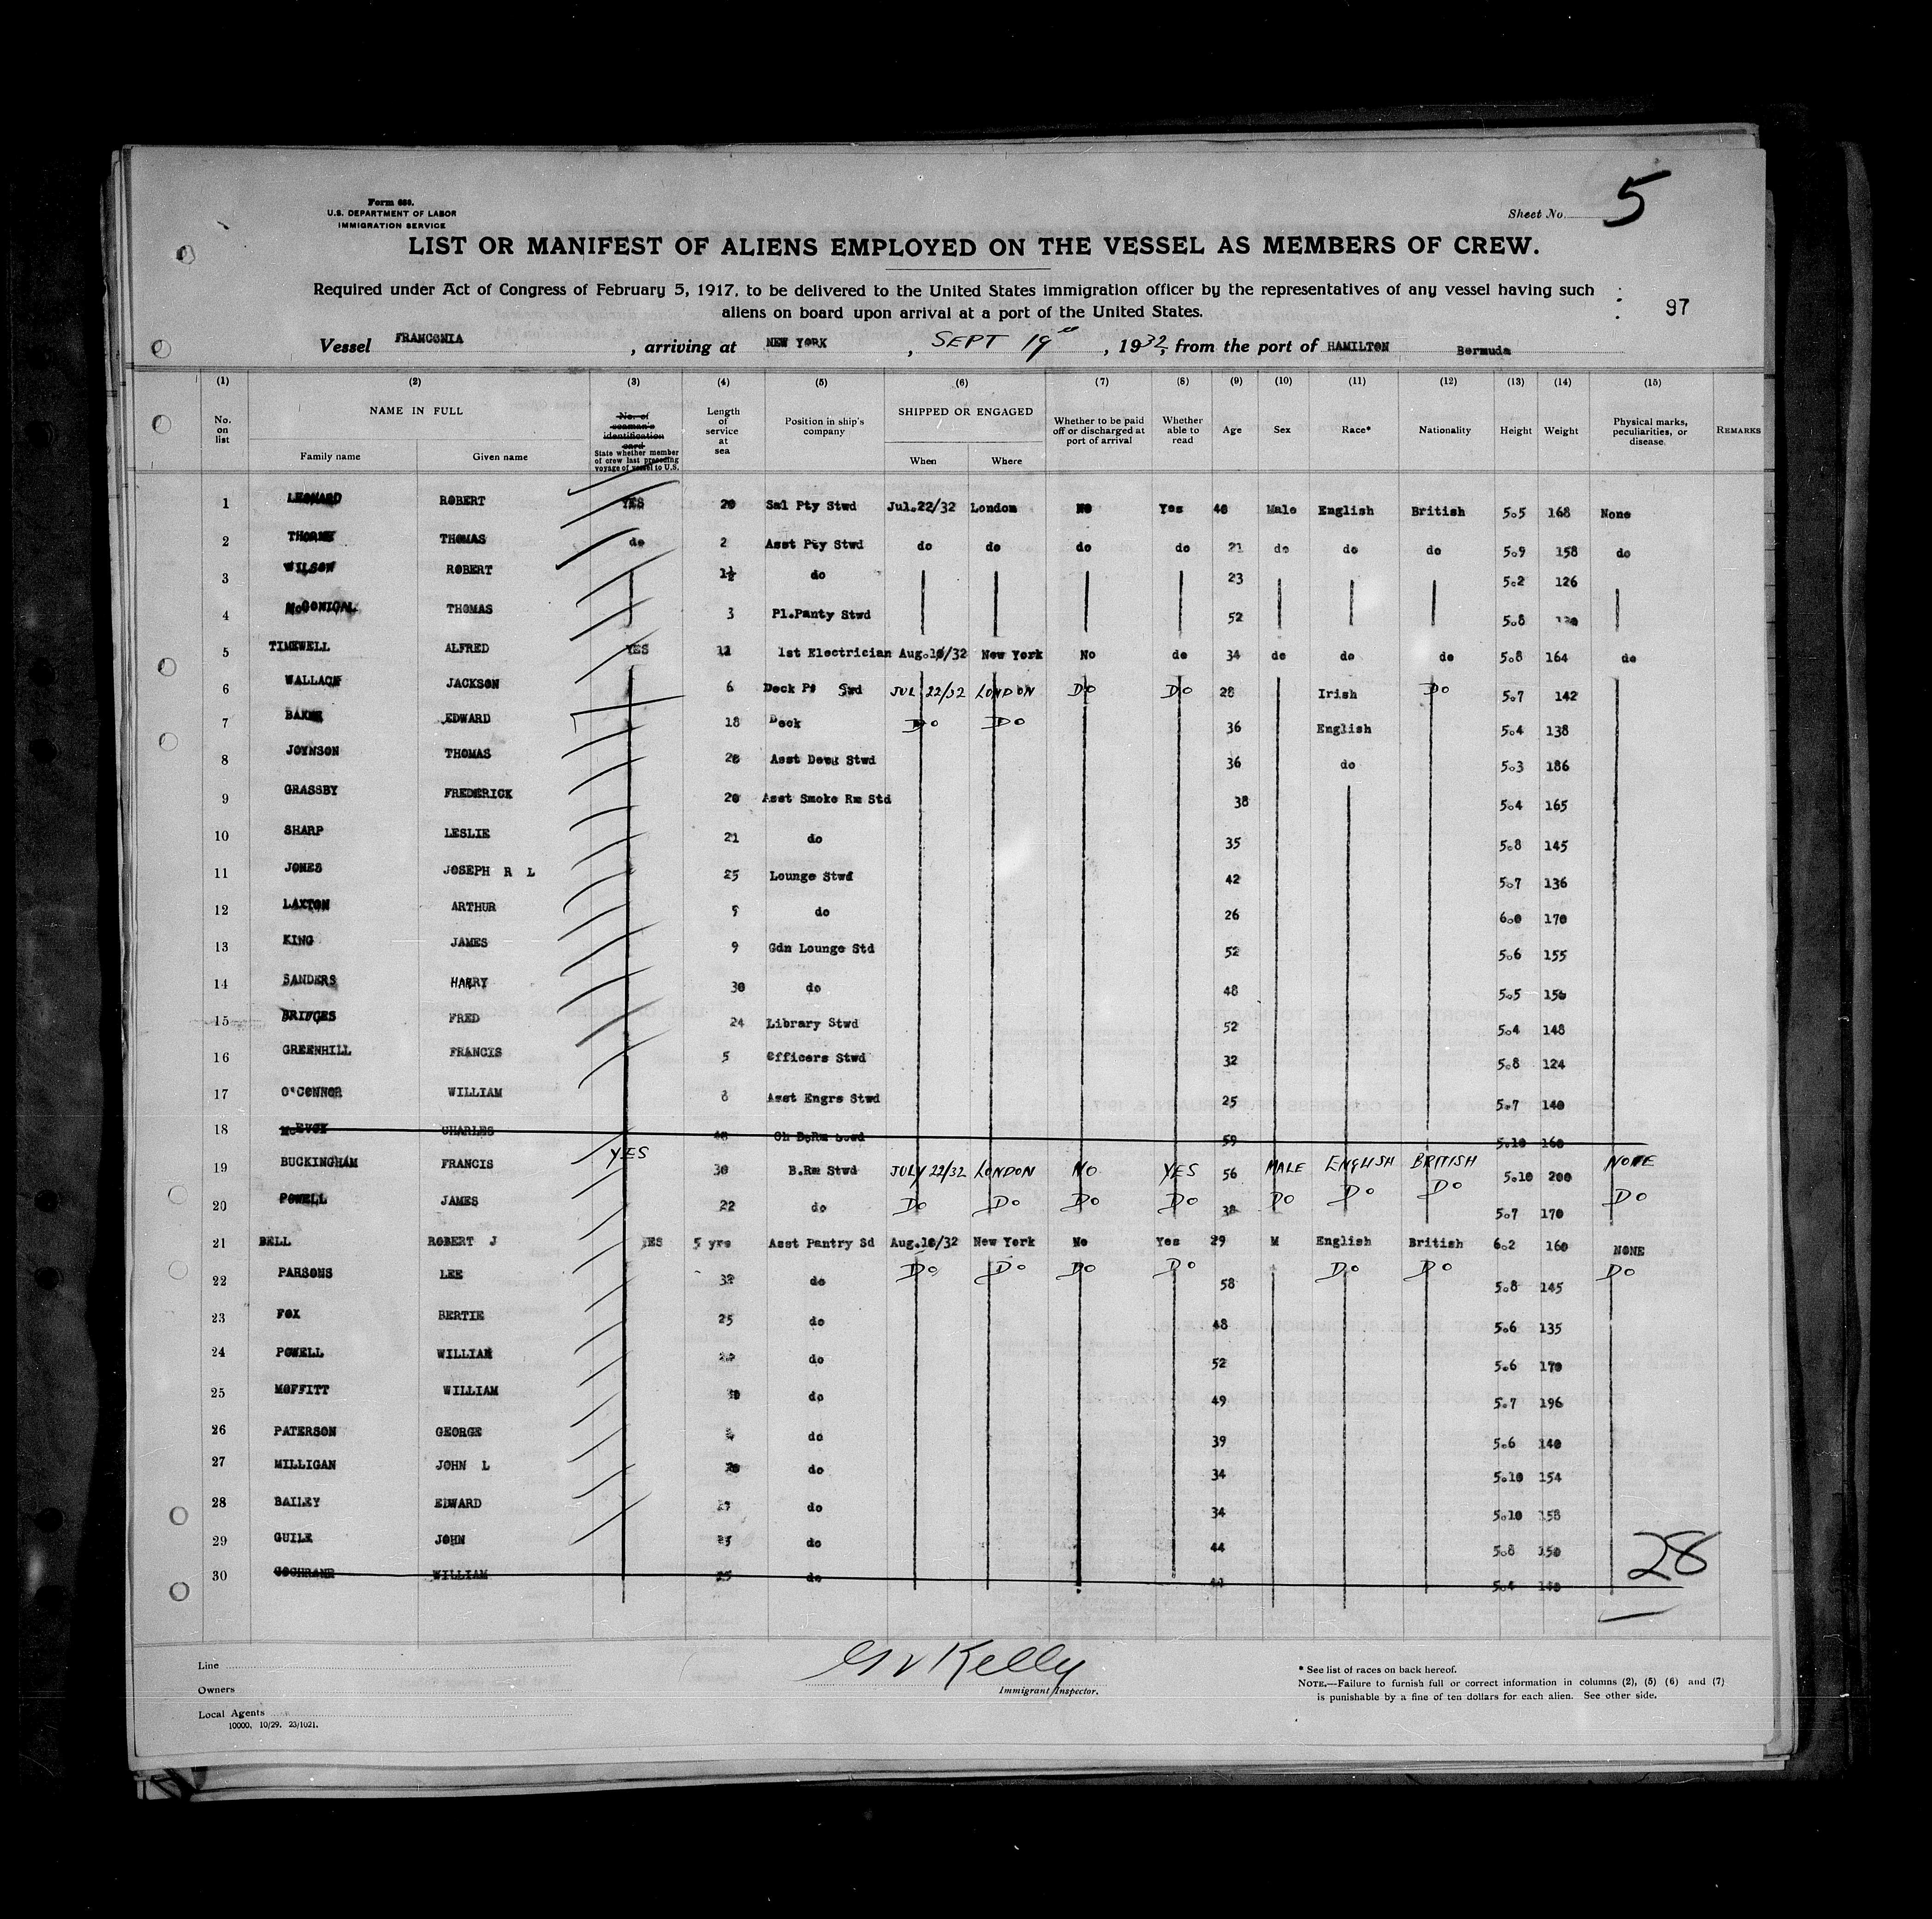 Form 680.
U.S. DEPARTMENT OF LABOR
IMMIGRATION SERVICE
Sheet No. 5
LIST OR MANIFEST OF ALIENS EMPLOYED ON THE VESSEL AS MEMBERS OF CREW.
Required under Act of Congress of February 5, 1917, to be delivered to the United States immigration officer by the representatives of any vessel having such
aliens on board upon arrival at a port of the United States.
97
Vessel FRANCONIA , arriving at NEW YORK , SEPT 19th , 1932, from the port of HAMILTON Bermuda
(1) (2) (3) (4) (5) (6) (7) (8) (9) (10) (11) (12) (13) (14) (15)
No. on list
NAME IN FULL
Family name Given name
No. of seaman's identification card
State whether member of crew last preceding voyage of vessel to U.S.
Length of service at sea
Position in ship's company
SHIPPED OR ENGAGED
When Where
Whether to be paid off or discharged at port of arrival
Whether able to read
Age Sex Race* Nationality Height Weight
Physical marks, peculiarities, or disease.
REMARKS
1 LEONARD ROBERT YES 20 Sal Pty Stwd Jul.22/32 London No Yes 40 Male English British 5.5 168 None
2 THORNE THOMAS do 2 Asst Pty Stwd do do do do 21 do do do 5.9 158 do
3 WILSON ROBERT 1½ do 23 5.2 126
4 McGONIGAL THOMAS 3 Pl.Panty Stwd 52 5.8
5 TIMEWELL ALFRED YES 12 1st Electrician Aug.10/32 New York No do 34 do do do 5.8 164 do
6 WALLACE JACKSON 6 Deck P Swd JUL 22/32 LONDON DO DO 28 Irish DO 5.7 142
7 BAKER EDWARD 18 Deck DO DO 36 English 5.4 138
8 JOYNSON THOMAS 20 Asst Deck Stwd 36 do 5.3 186
9 GRASSBY FREDERICK 20 Asst Smoke Rm Std 38 5.4 165
10 SHARP LESLIE 21 do 35 5.8 145
11 JONES JOSEPH R L 25 Lounge Stwd 42 5.7 136
12 LAXTON ARTHUR 5 do 26 6.0 170
13 KING JAMES 9 Gdn Lounge Std 52 5.6 155
14 SANDERS HARRY 30 do 48 5.5 150
15 BRIDGES FRED 24 Library Stwd 52 5.4 148
16 GREENHILL FRANCIS 5 Officers Stwd 32 5.8 124
17 O'CONNOR WILLIAM 8 Asst Engrs Stwd 25 5.7 140
18 McEVOY CHARLES 40 Ch B.Rm Stwd 59 5.10 160
19 BUCKINGHAM FRANCIS YES 30 B.Rm Stwd JULY 22/32 LONDON NO YES 56 MALE ENGLISH BRITISH 5.10 200 NONE
20 POWELL JAMES 22 do DO DO DO DO 38 DO DO DO 5.7 170 DO
21 BELL ROBERT J YES 5 yrs Asst Pantry Sd Aug.10/32 New York No Yes 29 M English British 6.2 160 NONE
22 PARSONS LEE 32 do DO DO DO DO 58 DO DO 5.8 145 DO
23 FOX BERTIE 25 do 48 5.6 135
24 POWELL WILLIAM do 52 5.6 170
25 MOFFITT WILLIAM 30 do 49 5.7 196
26 PATERSON GEORGE do 39 5.6 140
27 MILLIGAN JOHN L do 34 5.10 154
28 BAILEY EDWARD do 34 5.10 158
29 GUILE JOHN do 44 5.8 150
30 COCHRANE WILLIAM 25 do 5.4 140
28
Line
Owners
Local Agents
10000, 10/29, 23/1021.
G V Kelly
Immigrant Inspector.
* See list of races on back hereof.
NOTE.—Failure to furnish full or correct information in columns (2), (5) (6) and (7)
is punishable by a fine of ten dollars for each alien. See other side.